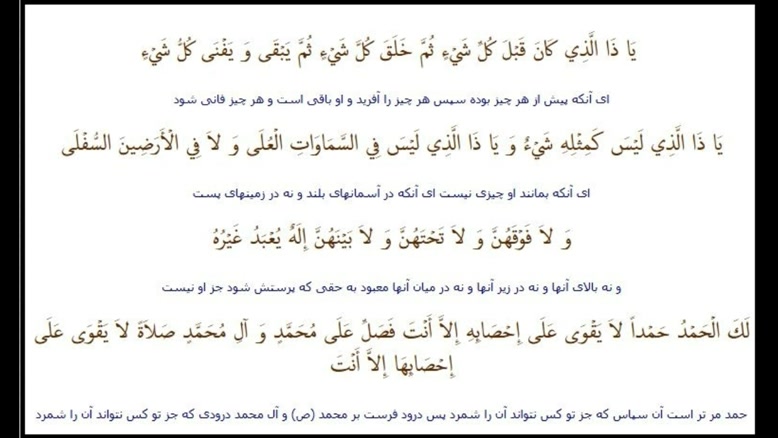 يَا ذَا الَّذِي كَانَ قَبْلَ كُلِّ شَيْءٍ ثُمَّ خَلَقَ كُلَّ شَيْءٍ ثُمَّ يَبْقَى وَ يَفْنَى كُلُّ شَيْءٍ
ای آنکه پیش از هر چیز بوده سپس هر چیز را آفرید و او باقی است و هر چیز فانی شود
يَا ذَا الَّذِي لَيْسَ كَمِثْلِهِ شَيْءٌ وَ يَا ذَا الَّذِي لَيْسَ فِي السَّمَاوَاتِ الْعُلَى وَ لاَ فِي الْأَرَضِينَ السُّفْلَى
ای آنکه بمانند او چیزی نیست ای آنکه در آسمانهای بلند و نه در زمینهای پست
وَ لاَ فَوْقَهُنَّ وَ لاَ تَحْتَهُنَّ وَ لاَ بَيْنَهُنَّ إِلَهٌ يُعْبَدُ غَيْرُهُ
و نه بالای آنها و نه در زیر آنها و نه در میان آنها معبود به حقی که پرستش شود جز او نیست
لَكَ الْحَمْدُ حَمْداً لاَ يَقْوَى عَلَى إِحْصَائِهِ إِلاَّ أَنْتَ فَصَلِّ عَلَى مُحَمَّدٍ وَ آلِ مُحَمَّدٍ صَلاَةً لاَ يَقْوَى عَلَى
إِحْصَائِهَا إِلاَّ أَنْتَ
حمد مر تر است آن سپاس که جز تو کس نتواند آن را شمرد پس درود فرست بر محمد (ص) و آل محمد درودی که جز تو کس نتواند آن را شمرد